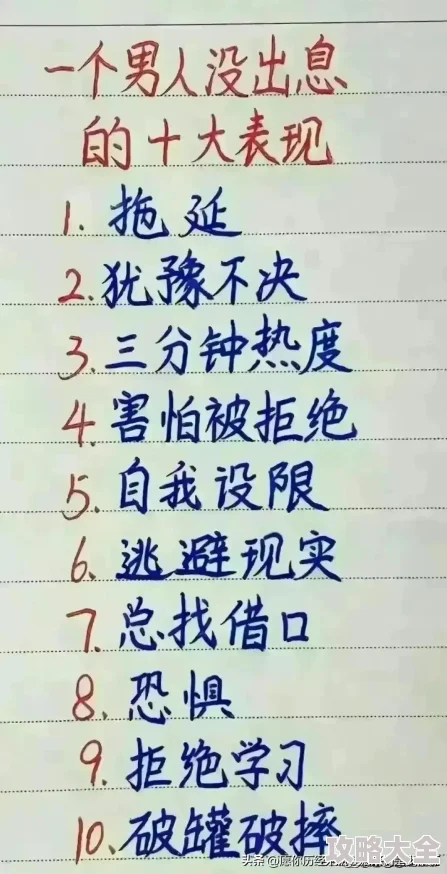 一个男人没出息
的十大表现
1. 拖延
2. 犹豫不决
3. 三分钟热度
4. 害怕被拒绝
5. 自我设限
6. 逃避现实
7. 总找借口
8. 恐惧
9. 拒绝学习
10. 破罐破摔
头条 @愿你历经
攻略大全